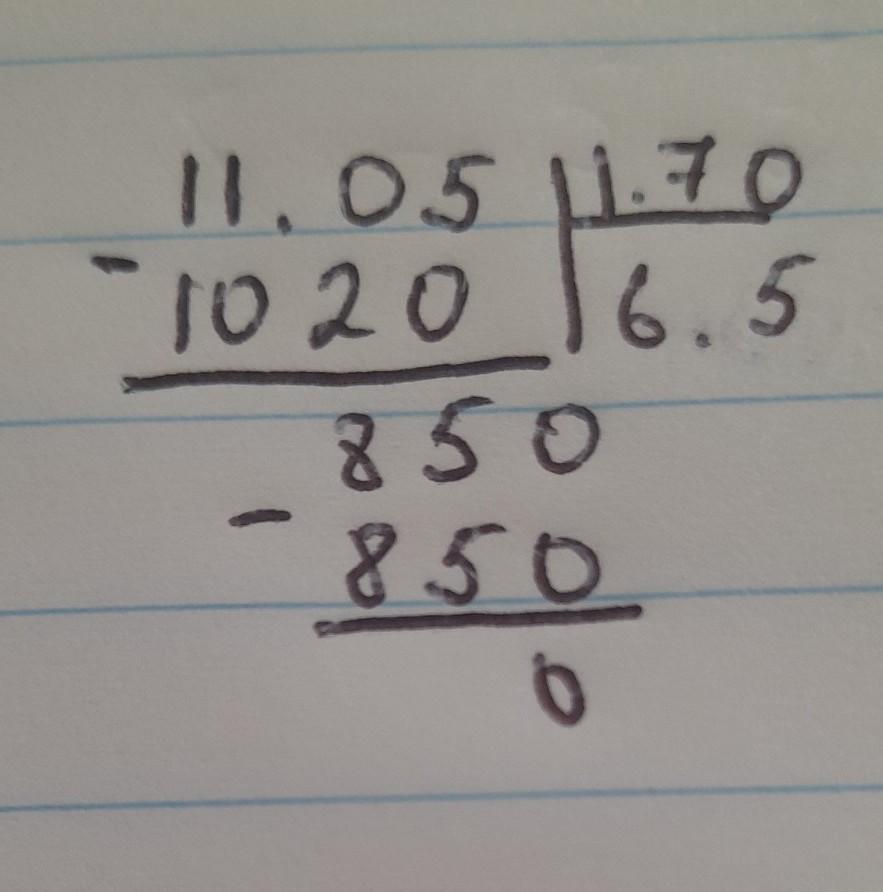 11.05 1.70
- 1020 6.5
850
- 850
0